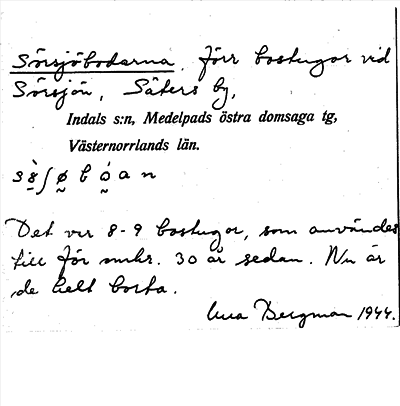 Sörsjöbodarna. Förr bostugor vid
Sörsjön, Säters by,
Indals s:n, Medelpads östra domsaga tg,
Västernorrlands län.
Det var 8-9 bostugor, som användes
till för omkr. 30 år sedan. Nu är
de helt borta.
Bergman 1944.